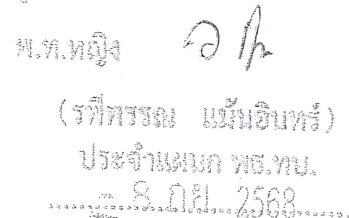 พ.ท.หญิง
(รพีพรรณ แม้นอินทร์)
ประจำแผนก พธ.ทบ.
- 8 ก.ย. 2568